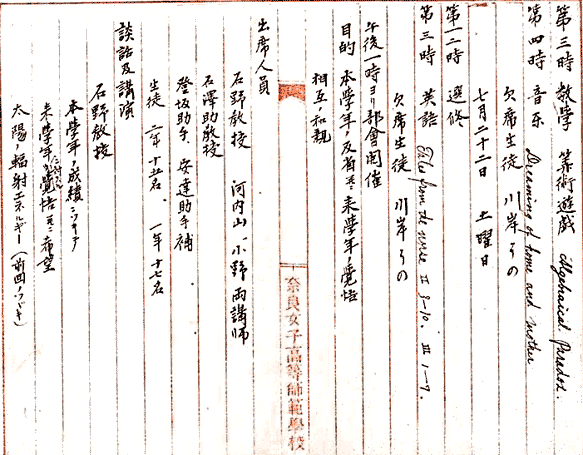 第三時 数学 算術遊戯 Algebraical Paradox.
第四時 音楽 Dreaming of home and mother
欠席生徒 川岸きの
七月二十二日 土曜日
第一二時 選修
第三時 英語 Tales from the II 9-10. III 1-7.
欠席生徒 川岸きの
午後一時ヨリ部會開催
目的 本學年ノ反省ト来學年ノ覚悟
相互ノ和親
奈良女子高等師範學校
出席人員
石野教授 河内山 小野 両講師
石澤助教授
登坂助手、安達助手補
生徒 二年十五名、一年十七名
談話及講演
石野教授
本學年ノ成績ニツキテ
来學年ニ対スル覚悟並ニ希望
太陽ノ輻射エネルギー(前回ノツヾキ)